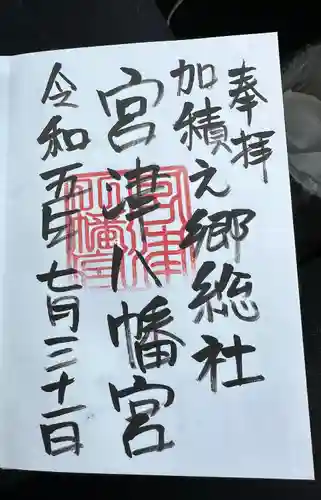 奉拝
加積之郷総社
宮津八幡宮
令和五年七月三十一日